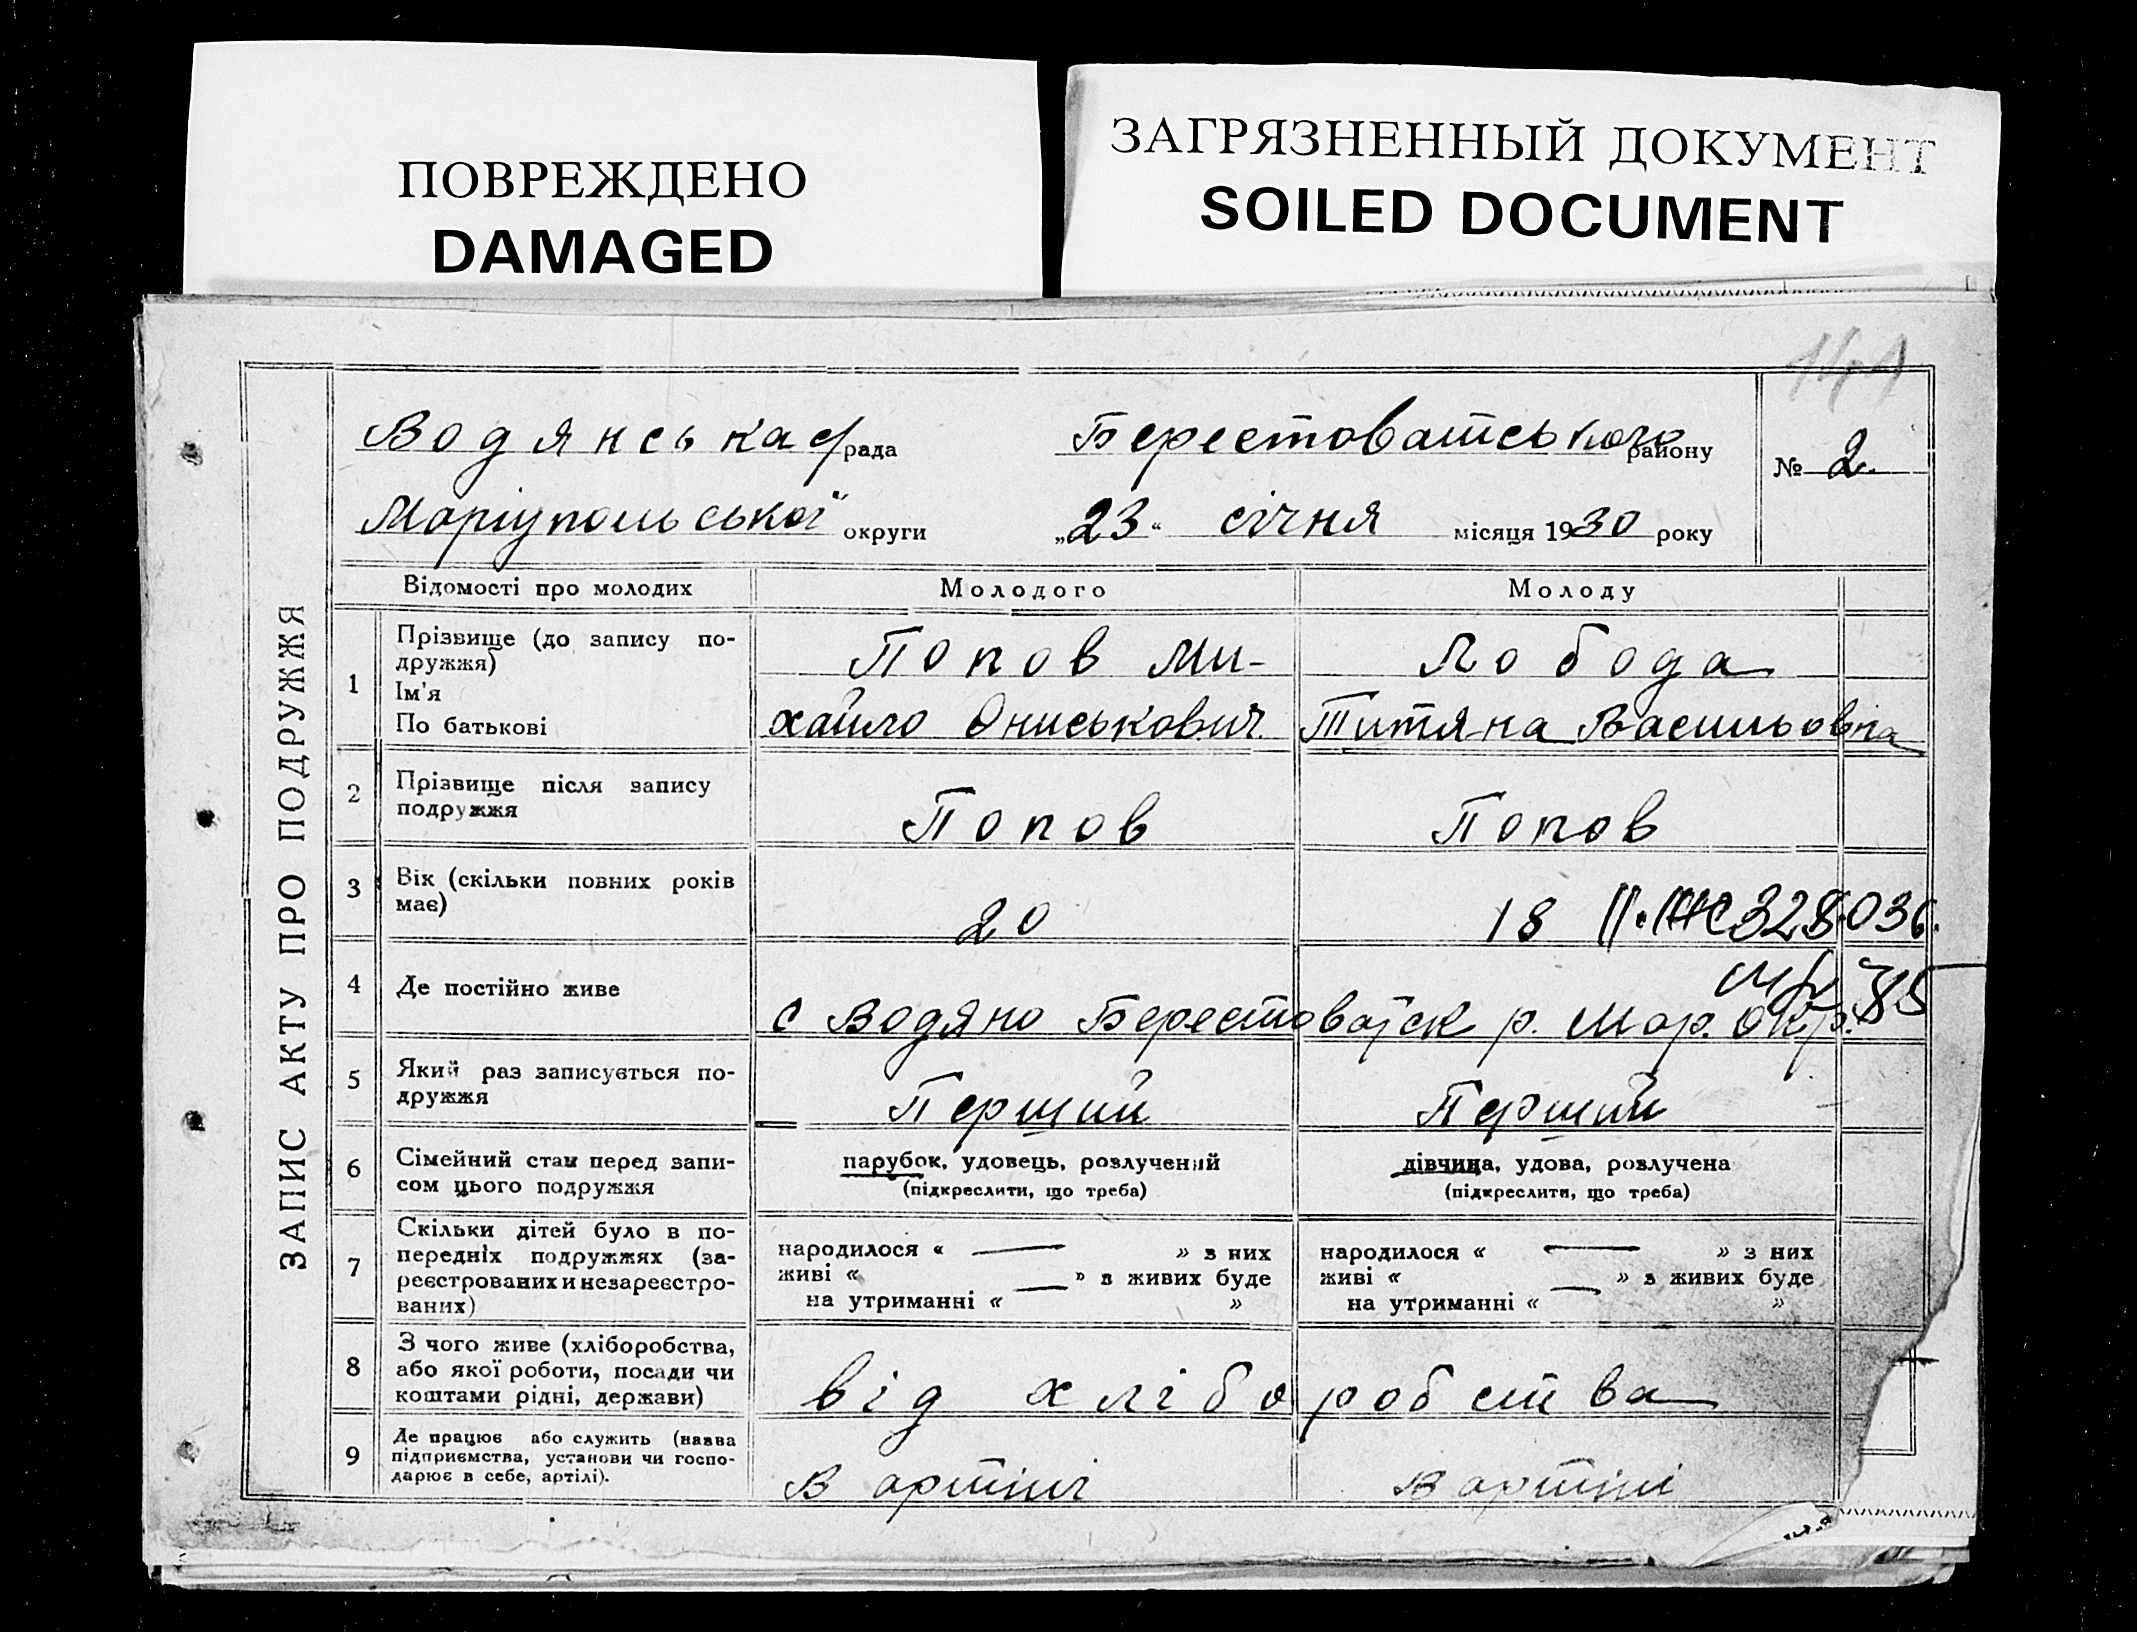 ПОВРЕЖДЕНО
DAMAGED
ЗАГРЯЗНЕННЫЙ ДОКУМЕНТ
SOILED DOCUMENT
ЗАПИС АКТУ ПРО ПОДРУЖЖЯ
Водянська с/рада Берестоватського району
№ 2.
Маріупольської округи „23“ січня місяця 1930 року
Відомості про молодих Молодого Молоду
1 Прізвище (до запису по-
дружжя)
Ім'я
По батькові
Попов Ми-
хайло Ониськович
Лобода
Титяна Васильовна
2 Прізвище після запису
подружжя
Попов Попов
3 Вік (скільки повних років
має)
20 18 328036.
4 Де постійно живе
с Водяно Берестоватск р. Мар. окр.
5 Який раз записується по-
дружжя
Перший Перший
6 Сімейний стан перед запи-
сом цього подружжя
парубок, удовець, розлучений
(підкреслити, що треба)
дівчина, удова, розлучена
(підкреслити, що треба)
7 Скільки дітей було в по-
передніх подружжях (за-
реєстрованих и незареєстро-
ваних)
народилося « — » з них
живі « — » з живих буде
на утриманні « »
народилося « — » з них
живі « — » з живих буде
на утриманні « »
8 З чого живе (хліборобства,
або якої роботи, посади чи
коштами рідні, держави)
від хліборобства
9 Де працює або служить (назва
підприємства, установи чи госпо-
дарює в себе, артілі).
В артілі В артілі